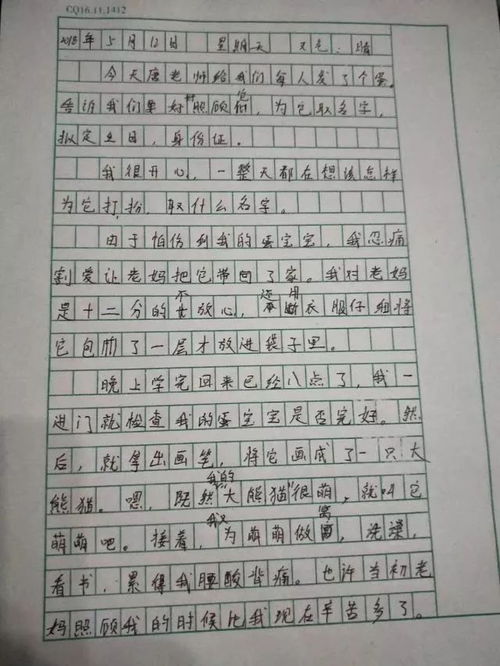 CQ16.11.1412
2018年5月12日 星期天 天气：晴
今天唐老师给我们每人发了个蛋。
告诉我们要好好照顾它，为它取名字，
拟定生日，身份证。
我很开心，一整天都在想该怎样
为它打扮，取什么名字。
由于怕伤到我的蛋宝宝，我忍痛
割爱让老妈把它带回了家。我对老妈
是十二分的不放心，还用衣服仔细将
它包了一层才放进袋子里。
晚上学完回来已经八点了，我一
进门就检查我的蛋宝宝是否完好。然
后，就拿出画笔，将它画成了一只大
熊猫。嗯，既然我的大熊猫很萌，就叫它
萌萌吧。接着，我又为萌萌做窝，洗澡，
看书，累得我腰酸背痛。也许当初老
妈照顾我的时候比我现在辛苦多了。